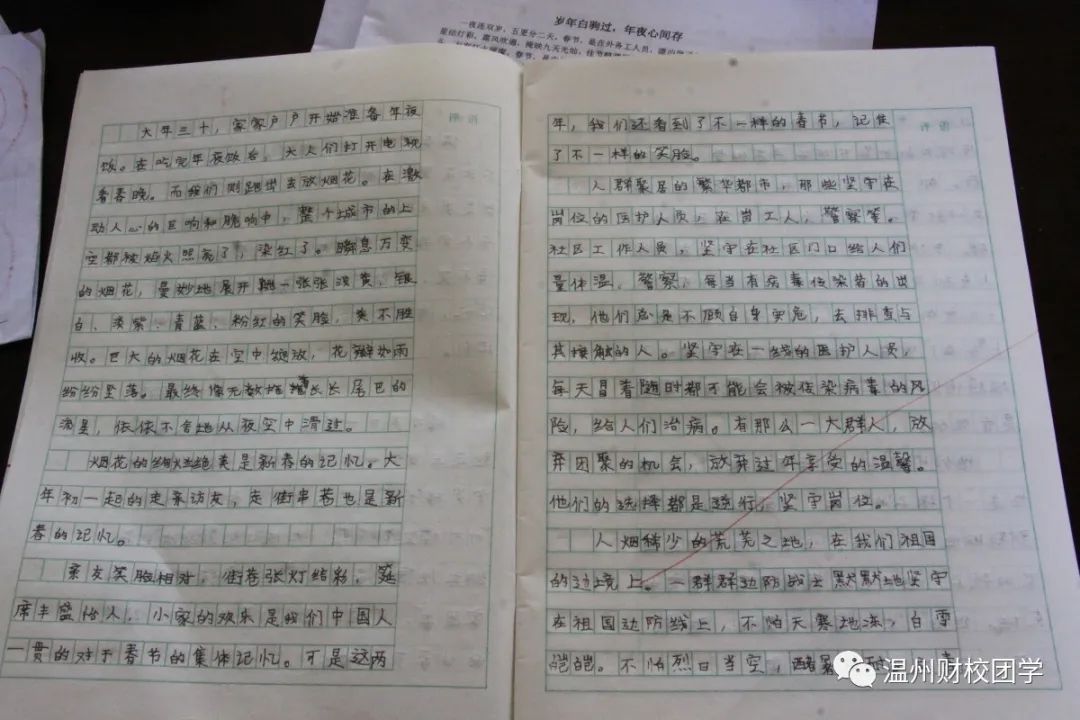 岁年白驹过，年夜心间存
一夜连双岁，五更分二天。春节，是在外务工人员，
大年三十，家家户户开始准备年夜
饭。在吃完年夜饭后，大人们打开电视
看春晚。而我们则跑出去放烟花。在激
动人心的巨响和脆响中，整个城市的上
空都被焰火照亮了，染红了。瞬息万变
的烟花，曼妙地展开一张张淡黄、银
白、淡紫、青蓝、粉红的笑脸，美不胜
收。巨大的烟花在空中绽放，花瓣如雨
纷纷坠落。最终像无数拖着长长尾巴的
流星，依依不舍地从夜空中滑过。
烟花的绚烂绝美是新春的记忆。大
年初一起的走亲访友，走街串巷也是新
春的记忆。
亲友笑脸相对，街巷张灯结彩，筵
席丰盛怡人，小家的欢乐是我们中国人
一贯的对于春节的集体记忆。可是这两
年，我们还看到了不一样的春节，记住
了不一样的笑脸。
人群聚居的繁华都市，那些坚守在
岗位的医护人员，在岗工人，警察等。
社区工作人员，坚守在社区门口给人们
量体温，警察，每当有病毒传染者的出
现，他们总是不顾自身安危，去排查与
其接触的人。坚守在一线的医护人员，
每天冒着随时都不能会被传染病毒的风
险，给人们治病。有那么一大群人，放
弃团聚的机会，放弃过年享受的温馨。
他们的选择都是逆行，坚守岗位。
人烟稀少的荒芜之地，在我们祖国
的边境上。一群群边防战士默默地坚守
在祖国边防线上，不怕天寒地冻，白雪
皑皑。不怕烈日当空，酷暑
温州财校团学